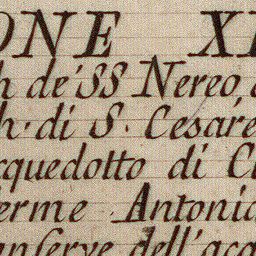 ONE XI
h de' SS Nereo,
h. di S. Cesare
cquedotto di Cl
erme Antonia
anserve dell'acq